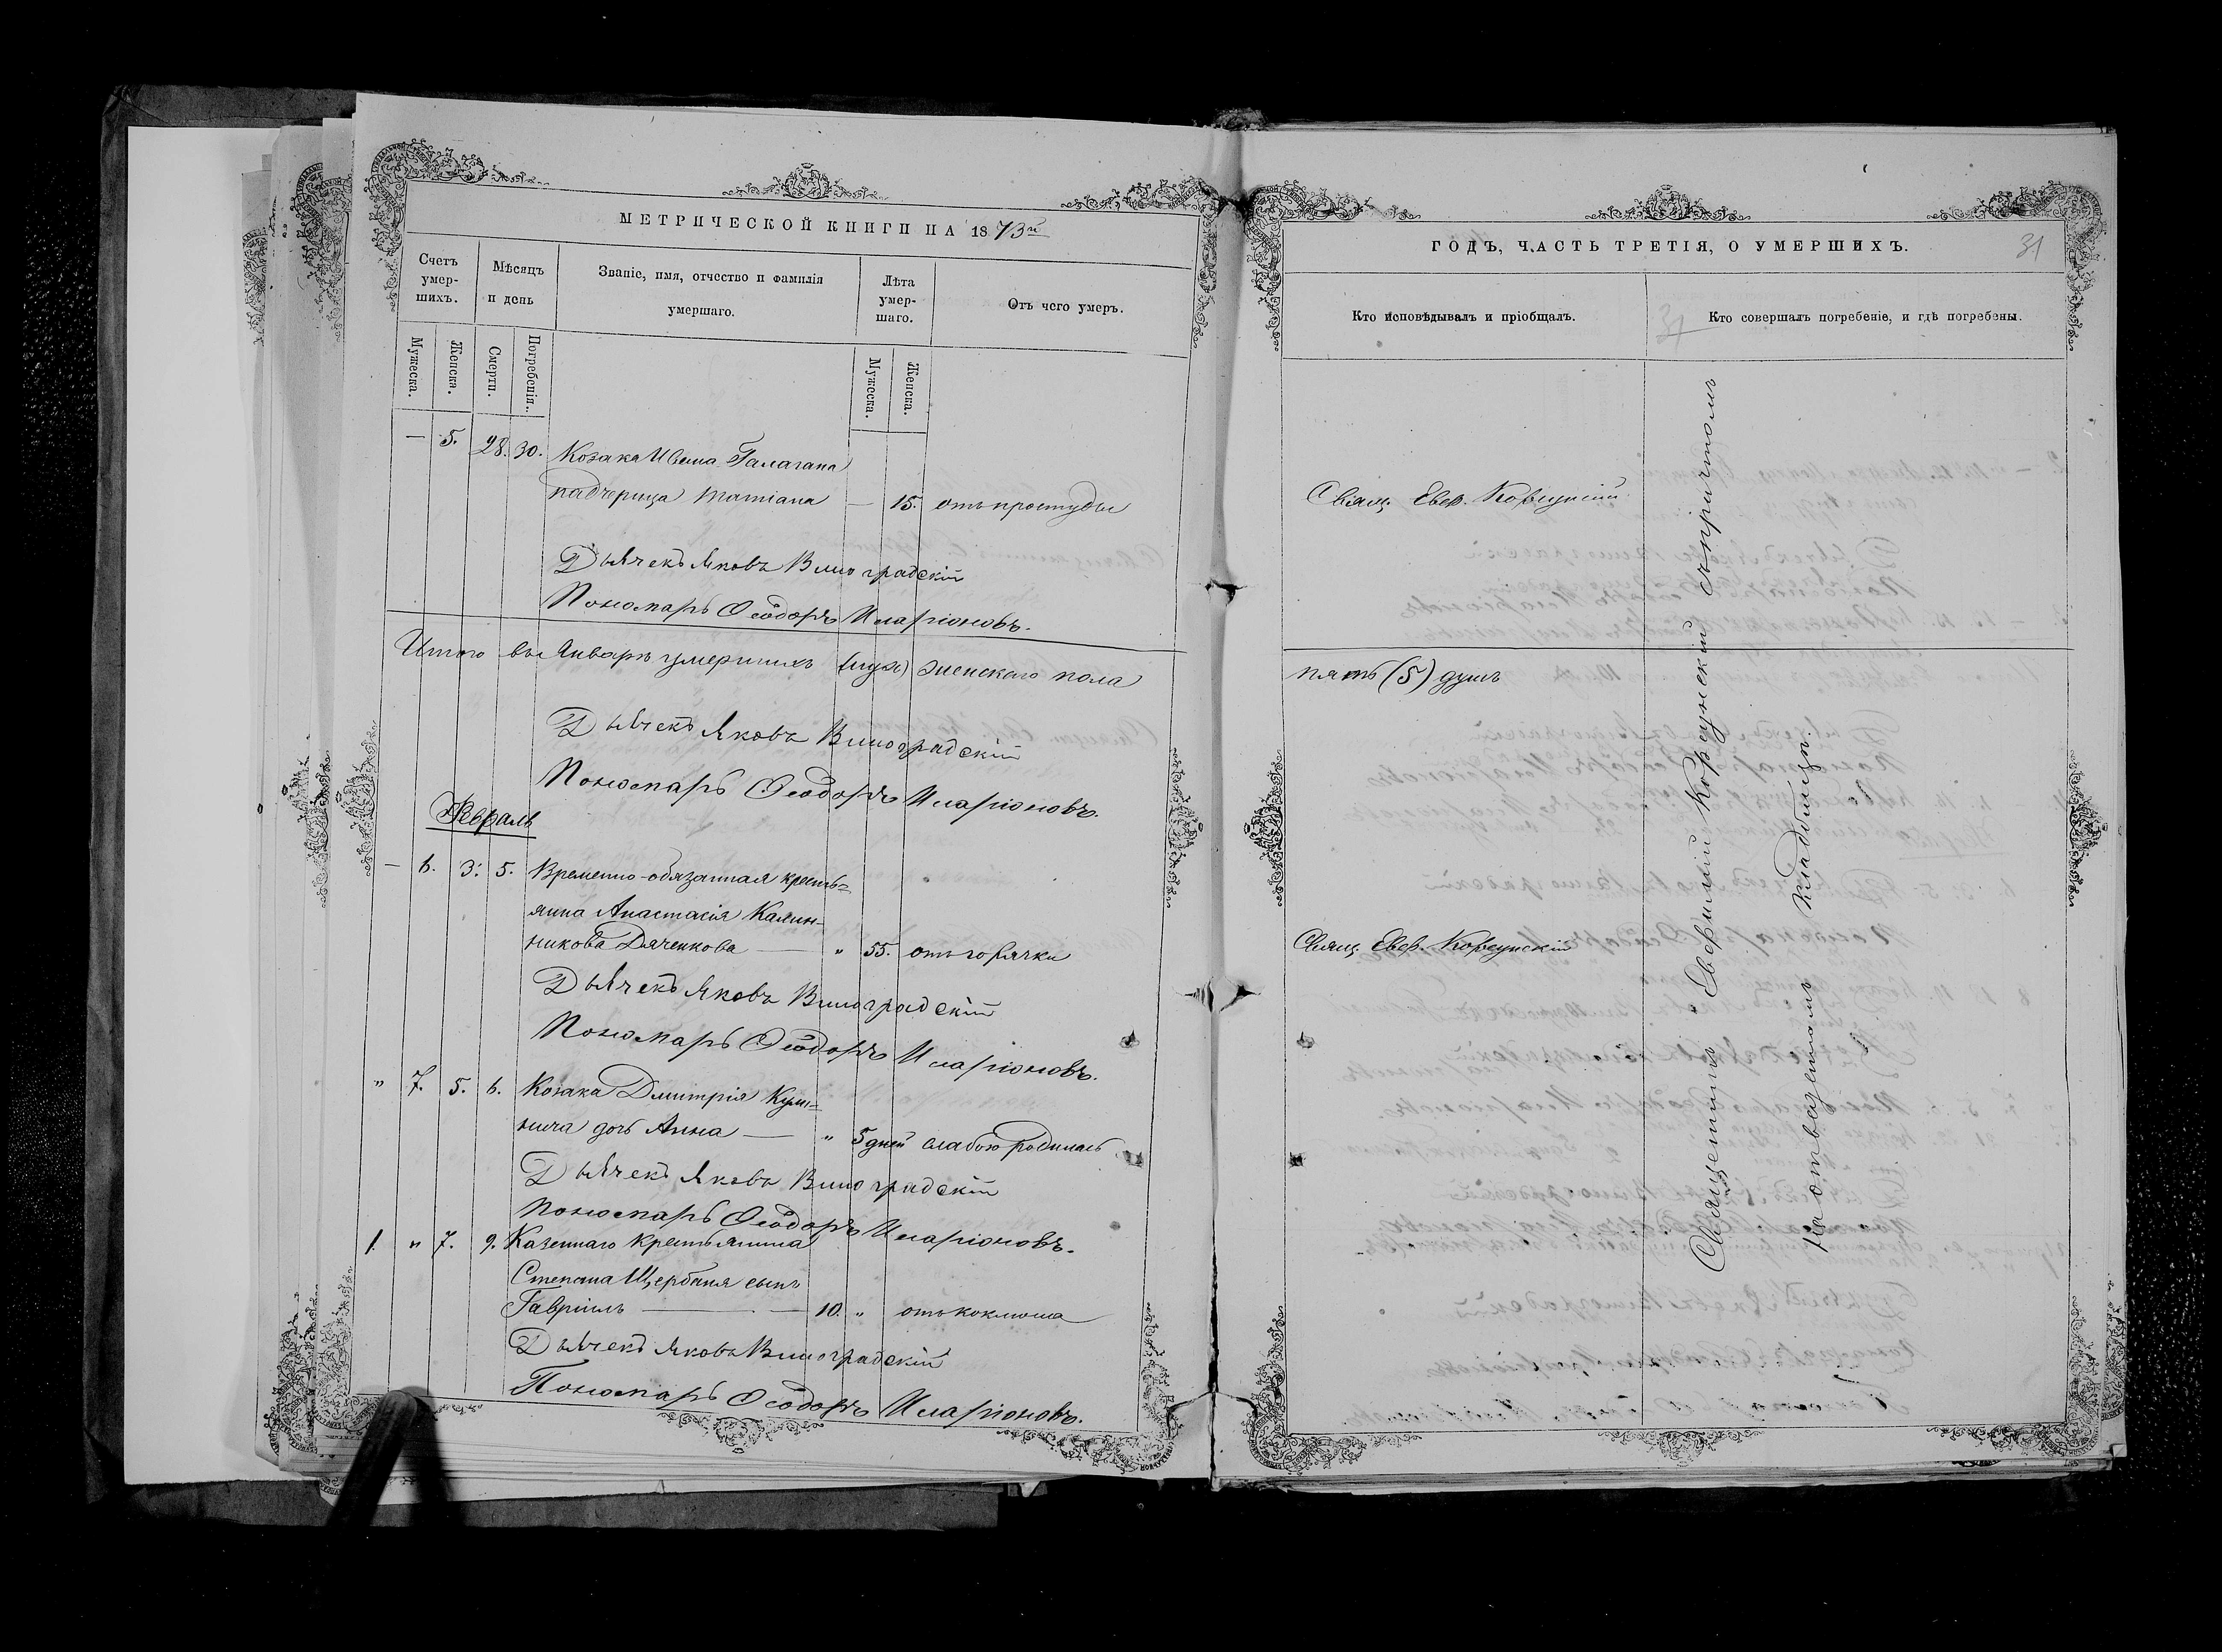 МЕТРИЧЕСКОЙ КНИГИ НА 1873й
Счетъ умер-шихъ.
Мѣсяцъ и день
Званіе, имя, отчество и фамилія умершаго.
Лѣта умер-шаго.
Отъ чего умеръ.
Мужеска.
Женска.
Смерти.
Погребенія.
Мужеска.
Женска.
— 5. 28. 30. Козака Ивана Галагана
падчерица Татіана — 15. отъ простуды
Дьячекъ Яковъ Виноградскій
Пономарь Ѳеодоръ Иларіоновъ.
Итого въ Январѣ умершихъ (муж) женскаго пола
Дьячекъ Яковъ Виноградскій
Пономарь Ѳеодоръ Иларіоновъ.
Февраль
— 6. 3. 5. Временно-обязанная кресть=
янка Анастасія Калин-
никова Дяченкова — „ 55. отъ горячки
Дьячекъ Яковъ Виноградскій
Пономарь Ѳеодоръ Иларіоновъ.
„ 7. 5. 6. Козака Дмитрія
дочь Анна — „ 5 дней слабою родилась
Дьячекъ Яковъ Виноградскій
Пономарь Ѳеодоръ Иларіоновъ.
1. „ 7. 9. Казеннаго крестьянина
Степана Щербаня сынъ
Гавріилъ — 10. „ отъ коклюша
Дьячекъ Яковъ Виноградскій
Пономарь Ѳеодоръ Иларіоновъ.
ГОДЪ, ЧАСТЬ ТРЕТІЯ, О УМЕРШИХЪ.
31
Кто исповѣдывалъ и пріобщалъ.
31
Кто совершалъ погребеніе, и гдѣ погребены.
Свящ. Евф. Корсунскій
пять (5) душъ
Свящ. Евф. Корсунскій
Священникъ Евфимій Корсунскій съ причтомъ
на отведенномъ кладбищѣ.